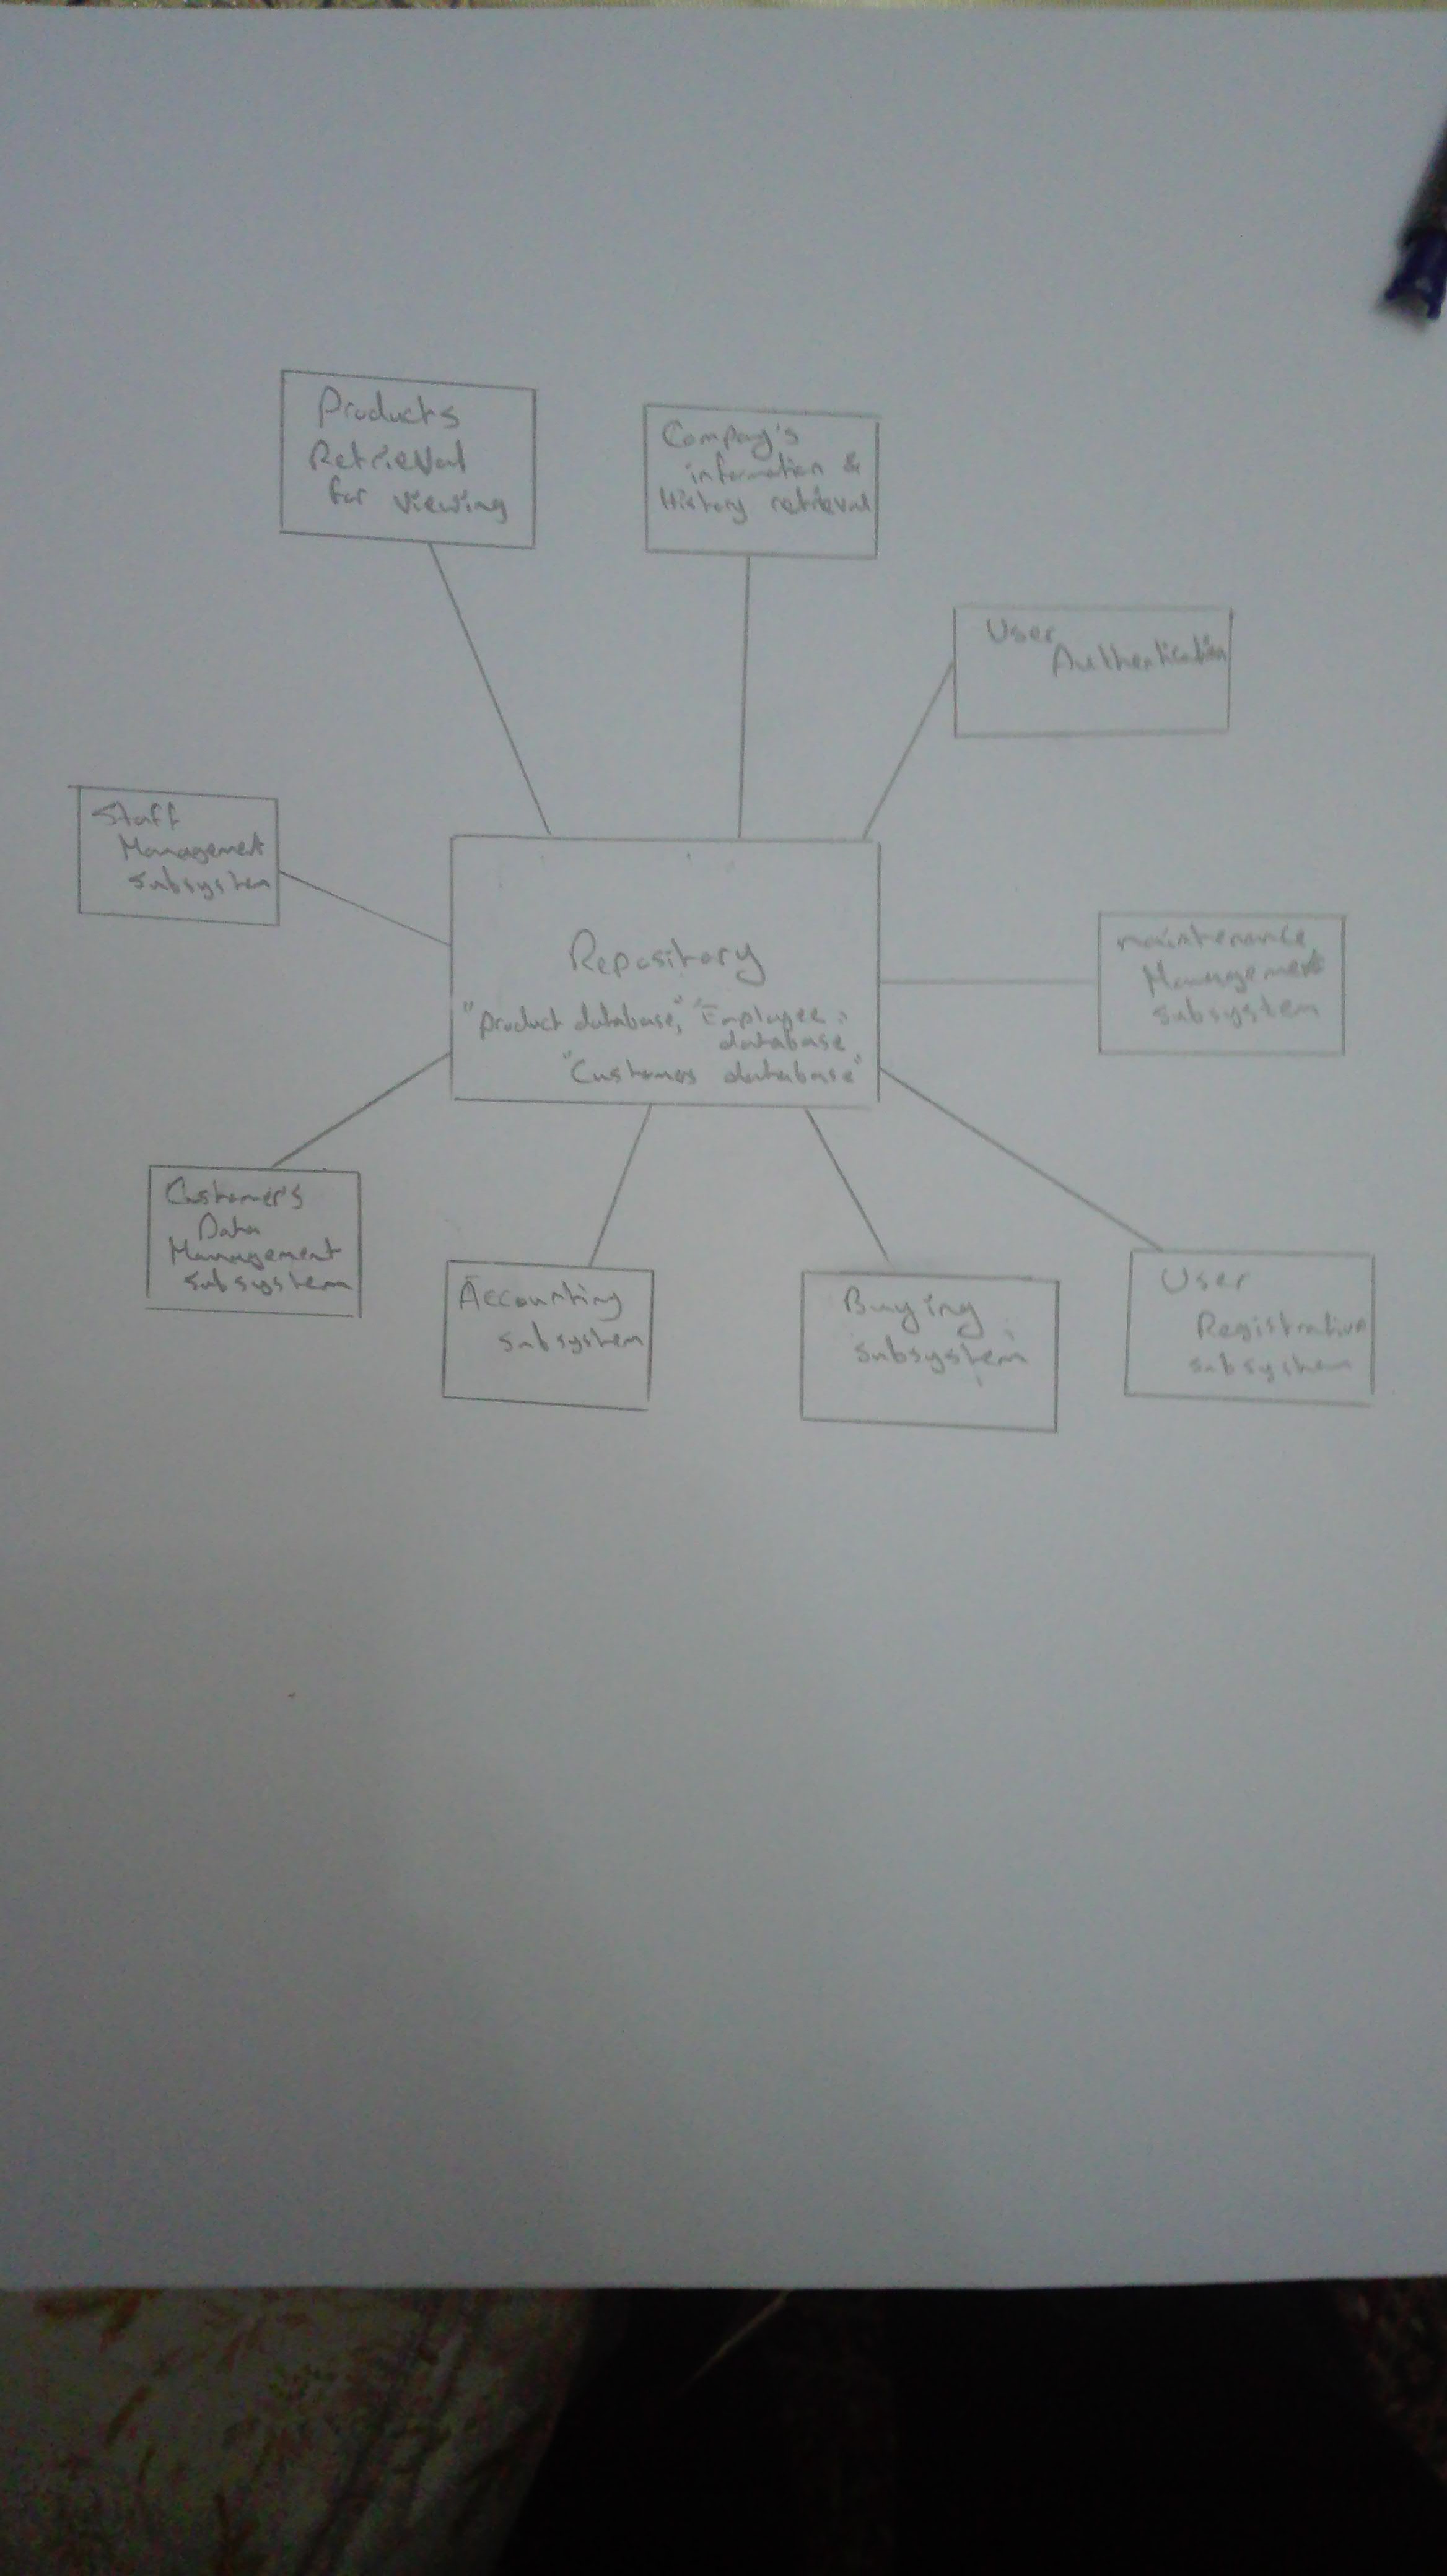 Products
Retrieval
for viewing
Company's
information &
History retrieval
User
Authentication
Staff
Management
subsystem
Repository
"product database," "Employee
database
"Customers database"
maintenance
Management
subsystem
Customer's
Data
Management
subsystem
Accounting
subsystem
Buying
subsystem
User
Registration
subsystem